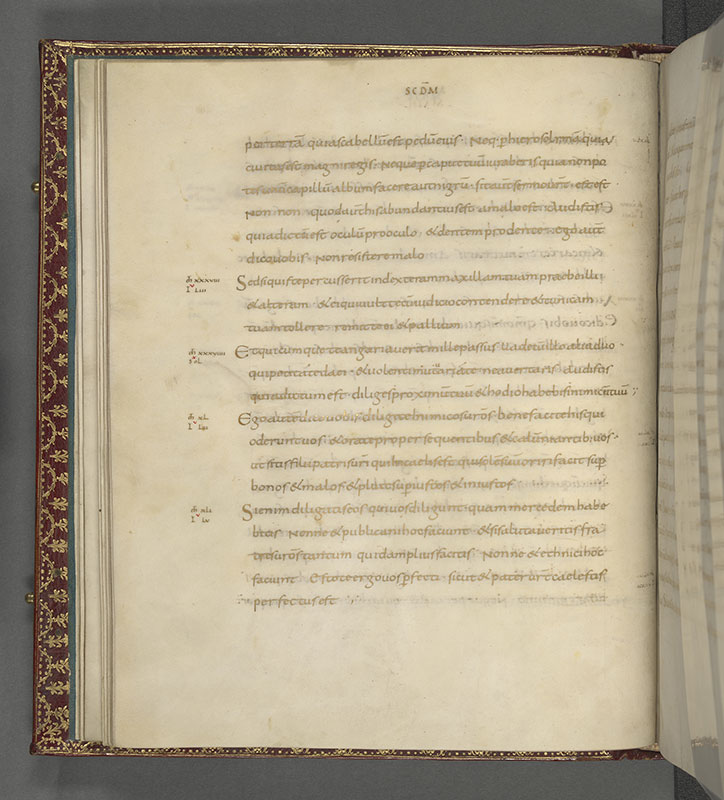 SCDM
per terrā quia scabellū est pedū eius · Neq· p hierosolimā quia
civitas est magni regis · Neque p caput tuū iuraberis quia non po
tes unū capillū album facere aut nigrū · sit aut sermo · est est
Non non · quod aut his abundantius est a malo est · Audistis
quia dictū est oculū pro oculo · & dentem p dente · ego aut
dico vobis · Non resistere malo
m xxxviii
L Liii
Sed si quis te percusserit in dexteram maxillam tuam praebe illi
& alteram · & ei qui vult tecū iudicio contendere & tunicam
tuam tollere · remitte ei & pallium
m xxxviiii
Et quicumque te angariaverit mille passus vade cū illo alia duo
qui petit a te da ei · & volenti mutuari a te ne avertaris · Audistis
quia dictum est · diliges proximū tuū & hodio habebis inimicū tuū
m xl
Ego autē dico vobis · diligite inimicos vr̄os · benefacite his qui
oderunt vos · & orate pro persequentibus & calūniantib; vos ·
ut sitis filii patris vr̄i qui in caelis est · qui solē suū oriri facit sup
bonos & malos & pluit sup iustos & iniustos
m xli
L Lv
Si enim diligatis eos qui vos diligunt · quam mercedem habe
bitis · Nonne & publicani hoc faciunt · & si salutaveritis fra
tres vr̄os tantum · quid amplius facitis · Nonne & ethnici hoc
faciunt · Estote ergo vos pfecti · sicut & pater vr̄ caelestis
perfectus est